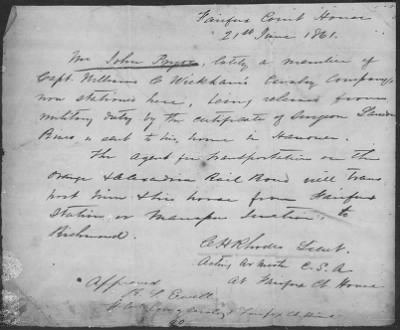 Fairfax Court House
21st June 1861.
Mr John Royce, lately a member of
Capt. Williams C Wickham's Cavalry Company,
now stationed here, being released from
military duty by the certificate of Surgeon
is sent to his home in Hanover.
The Agent for transportation on the
Orange & Alexandria Rail Road will trans
port him & his horse from Fairfax
Station or Manassas Junction, to
Richmond.
C H Rhodes Lieut.
Acting Qr Mastr C. S. A
At Fairfax Ct House
Approved
R. S. Ewell